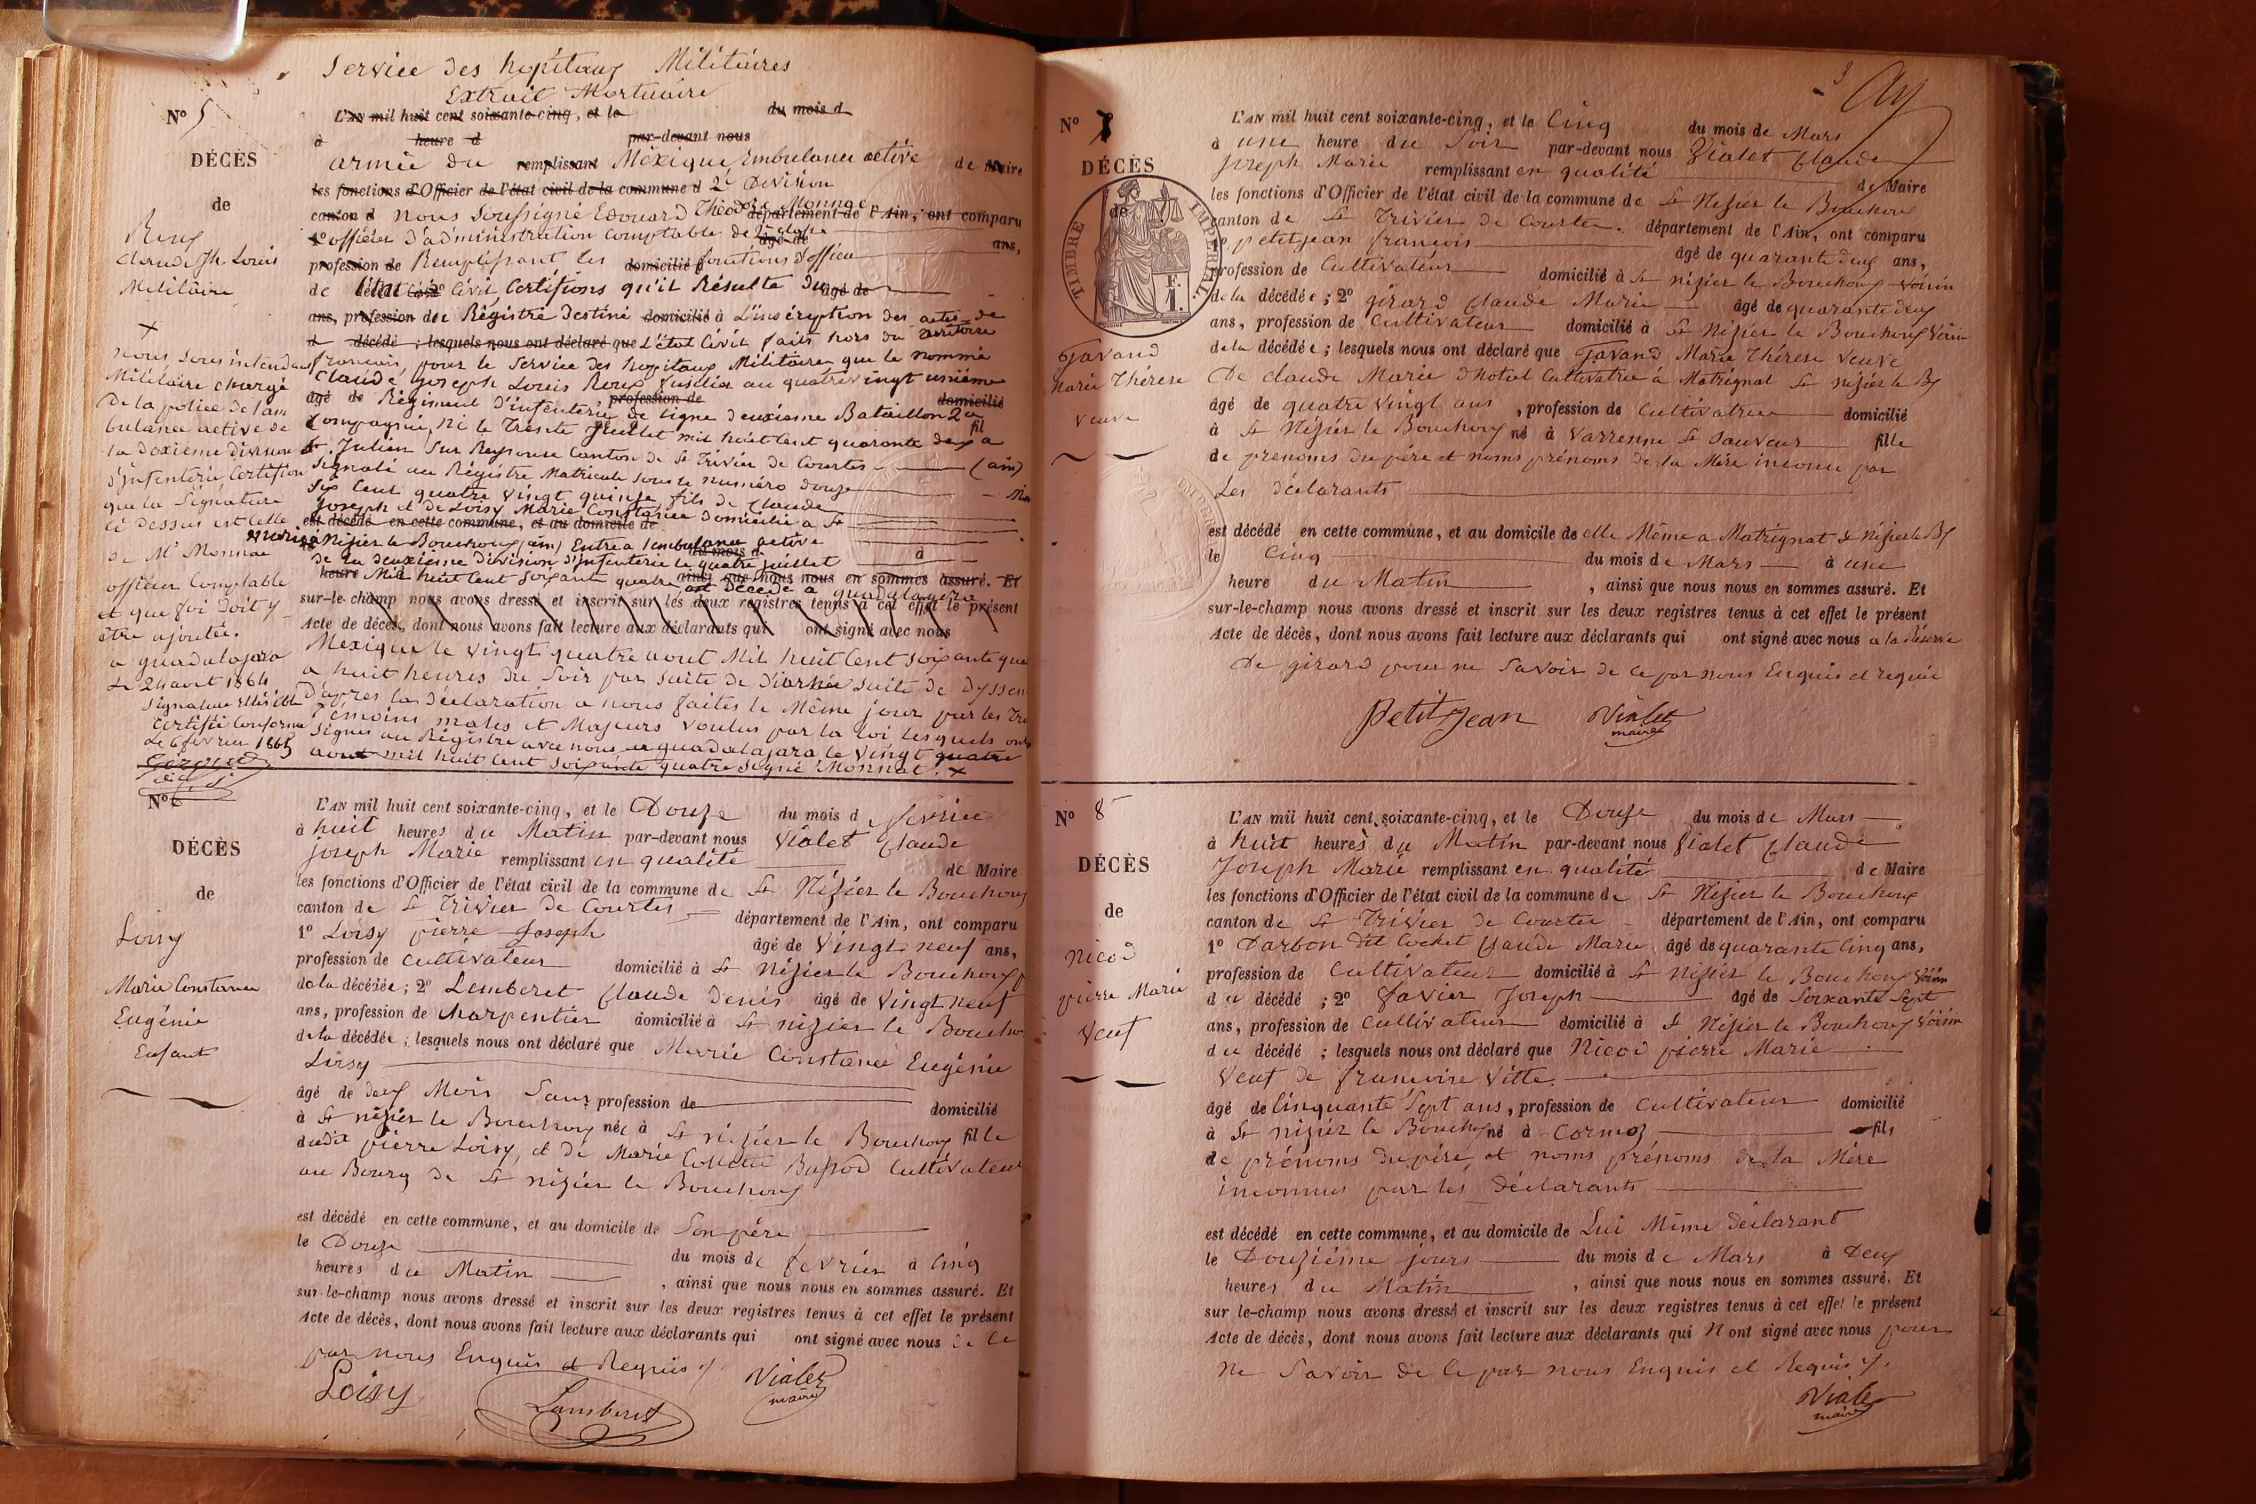 Service des hopitaux Militaires
Extrait Mortuaire
N° 5
DÉCÈS
de
Roux
Claude Jh Louis
Militaire
L'AN mil huit cent soixante-cinq, et le du mois d
à heure d par-devant nous
armée du remplissant Méxique Embulance active de Maire
les fonctions d'Officier de l'état civil de la commune d 2e Division
canton d nous soussigné Edouard Théodore Monnae département de l'Ain, ont comparu
1° officier d'administration comptable de 2e classe âgé de ans,
profession de Remplissant les domicilié fonctions d'officier
de l'état civil Certifions qu'il Résulte du âgé de
ans, profession de Régistre destiné domicilié à L'inscription des actes de
d décédé ; lesquels nous ont déclaré que L'état Civil faits hors du territoire
francais, pour le Service des hopitaux Militaires que le nommé
Claude joseph Louis Roux fusilier au quatre vingt unième
âgé de Régiment d'infenterie de ligne deuxieme Bataillon 2e profession de domicilié
Compagnie, né le Trente juillet mil huit cent quarante deux a fil
St Julien Sur Reyssouse Canton de St Trivier de Courtes (ain)
Signalé au Régistre Matricule sous le numéro douze
Six Cent quatre vingt quinze fils de Claude
Joseph et de Loisy Marie Constance domicilié a St
est décédé en cette commune, et au domicile de
Nizier le Bouchoux (ain) Entré a l'embulance active
de la deuxieme division d'infenterie le quatre juillet
heure Mil huit Cent Soixante quatre ainsi que nous nous en sommes assuré. Et
est Décédé a guadalajara
sur-le-champ nous avons dressé et inscrit sur les deux registres tenus à cet effet le présent
Acte de décès, dont nous avons fait lecture aux déclarants qui ont signé avec nous
Mexique le vingt quatre aout Mil huit Cent soixante qua
a huit heures du Soir par suite de diarhée suite de Dyssen
D'apres la déclaration a nous faites le Même jour par les Tro
Témoins males et Majeurs voulus par la loi lesquels ont
signés au Régistre avec nous a guadalajara le vingt quatre
aout mil huit Cent soixante quatre signé Monnae. x
x
nous sous intendant
Militaire chargé
De la police de l'am
bulance active de
la dexieme division
d'infenterie, Certifion
que la Signature
ci dessus est celle
de Mr Monnae
officier Comptable
et que foi doit y
être ajoutée.
a guadalajara
le 24 aout 1864
Signature illisible
Certifié Conforme
Le 6 février 1865
N° 6
DÉCÈS
de
Loisy
Marie Constance
Eugénie
Enfant
L'AN mil huit cent soixante-cinq, et le Douze du mois d février
à huit heures du Matin par-devant nous Vialet Claude
joseph Marie remplissant en qualité de Maire
les fonctions d'Officier de l'état civil de la commune de St Nizier le Bouchoux
canton de St Trivier de Courtes département de l'Ain, ont comparu
1° Loisy pierre Joseph âgé de vingt neuf ans,
profession de Cultivateur domicilié à St Nizier le Bouchoux
de la décédée ; 2° Lemberet Claude Denis âgé de vingt neuf
ans, profession de Charpentier domicilié à St nizier le Boucho
de la décédée ; lesquels nous ont déclaré que Marie Constance Eugénie
Loisy
âgé de deux Mois Sans profession de domicilié
à St nizier le Bouchoux née à St nizier le Bouchoux fille
dudit pierre Loisy, et de Marie Collette Bassod Cultivateur
au Bourg de St nizier le Bouchoux
est décédé en cette commune, et au domicile de Son père
le Douze du mois de février à Cinq
heures du Matin, ainsi que nous nous en sommes assuré. Et
sur-le-champ nous avons dressé et inscrit sur les deux registres tenus à cet effet le présent
Acte de décès, dont nous avons fait lecture aux déclarants qui ont signé avec nous de ce
par nous Enquis et Requis
Loisy Lamberet Vialet
maire
N° 7
DÉCÈS
de
TIMBRE IMPÉRIAL
F.
1.
Gavand
Marie Thérese
veuve
L'AN mil huit cent soixante-cinq, et le Cinq du mois de Mars
à une heure du Soir par-devant nous Vialet Claude
Joseph Marie remplissant en qualité de Maire
les fonctions d'Officier de l'état civil de la commune de St Nizier le Bouchoux
canton de St Trivier de Courtes. département de l'Ain, ont comparu
1° petitjean françois âgé de quarante deux ans,
profession de Cultivateur domicilié à St nizier le Bouchoux voisin
de la décédée ; 2° girard Claude Marie âgé de quarante deux
ans, profession de Cultivateur domicilié à St Nizier le Bouchoux voisin
de la décédée ; lesquels nous ont déclaré que Gavand Marie Thérese veuve
De Claude Marie dhotel Cultivatrice à Matrignat St nizier le Bx
âgé de quatre vingt ans, profession de Cultivatrice domicilié
à St Nizier le Bouchoux né à Varrenne St Sauveur fille
de prenoms du père et noms prénoms de la Mère inconu par
Les déclarants
est décédé en cette commune, et au domicile de elle Même a Matrignat St Nizier le Bx
le Cinq du mois de Mars à une
heure du Matin, ainsi que nous nous en sommes assuré. Et
sur-le-champ nous avons dressé et inscrit sur les deux registres tenus à cet effet le présent
Acte de décès, dont nous avons fait lecture aux déclarants qui ont signé avec nous a la Réserve
De girard pour ne Savoir de ce par nous Enquis et requis
Petitjean Vialet
maire
N° 8
DÉCÈS
de
Nicod
pierre Marie
Veuf
L'AN mil huit cent soixante-cinq, et le Douze du mois de Mars
à huit heures du Matin par-devant nous Vialet Claude
Joseph Marie remplissant en qualité de Maire
les fonctions d'Officier de l'état civil de la commune de St Nizier le Bouchoux
canton de St Trivier de Courtes département de l'Ain, ont comparu
1° Darbon dit Cochet Claude Marie âgé de quarante Cinq ans,
profession de Cultivateur domicilié à St nizier le Bouchoux voisin
du décédé ; 2° favier Joseph âgé de Soixante Sept
ans, profession de Cultivateur domicilié à St Nizier le Bouchoux voisin
du décédé ; lesquels nous ont déclaré que Nicod pierre Marie
Veuf de francoise Vitte
âgé de Cinquante Sept ans, profession de Cultivateur domicilié
à St nizier le Bouchoux né à Cormoz fils
de prénoms du père, et noms prénoms de la Mère
inconnus par les déclarants
est décédé en cette commune, et au domicile de Lui Même déclarant
le Douzième jours du mois de Mars à Deux
heures du Matin, ainsi que nous nous en sommes assuré. Et
sur le-champ nous avons dressé et inscrit sur les deux registres tenus à cet effet le présent
Acte de décès, dont nous avons fait lecture aux déclarants qui N ont signé avec nous pour
ne Savoir de ce par nous Enquis et Requis
Vialet
maire